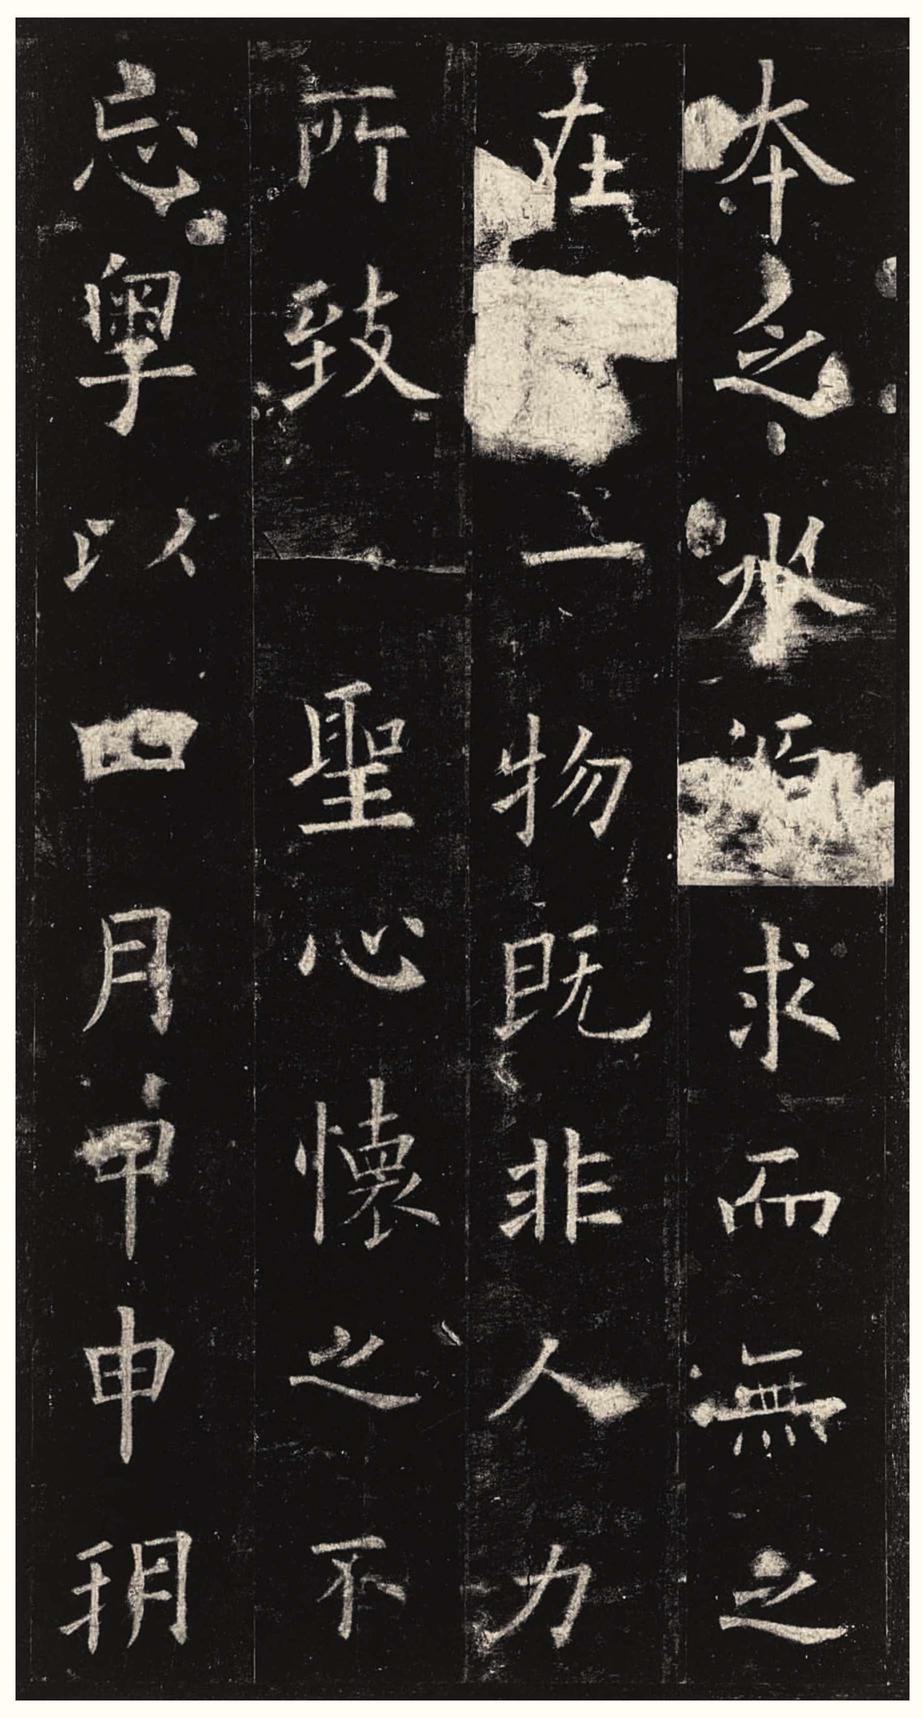 本乏水源求而無之
在一物既非人力
所致聖心懷之不
忘粵以四月甲申朔